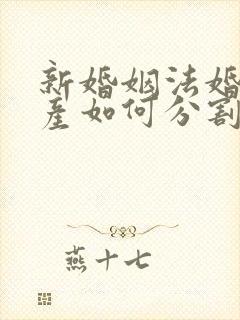 新婚姻法婚
产如何分割
燕十七